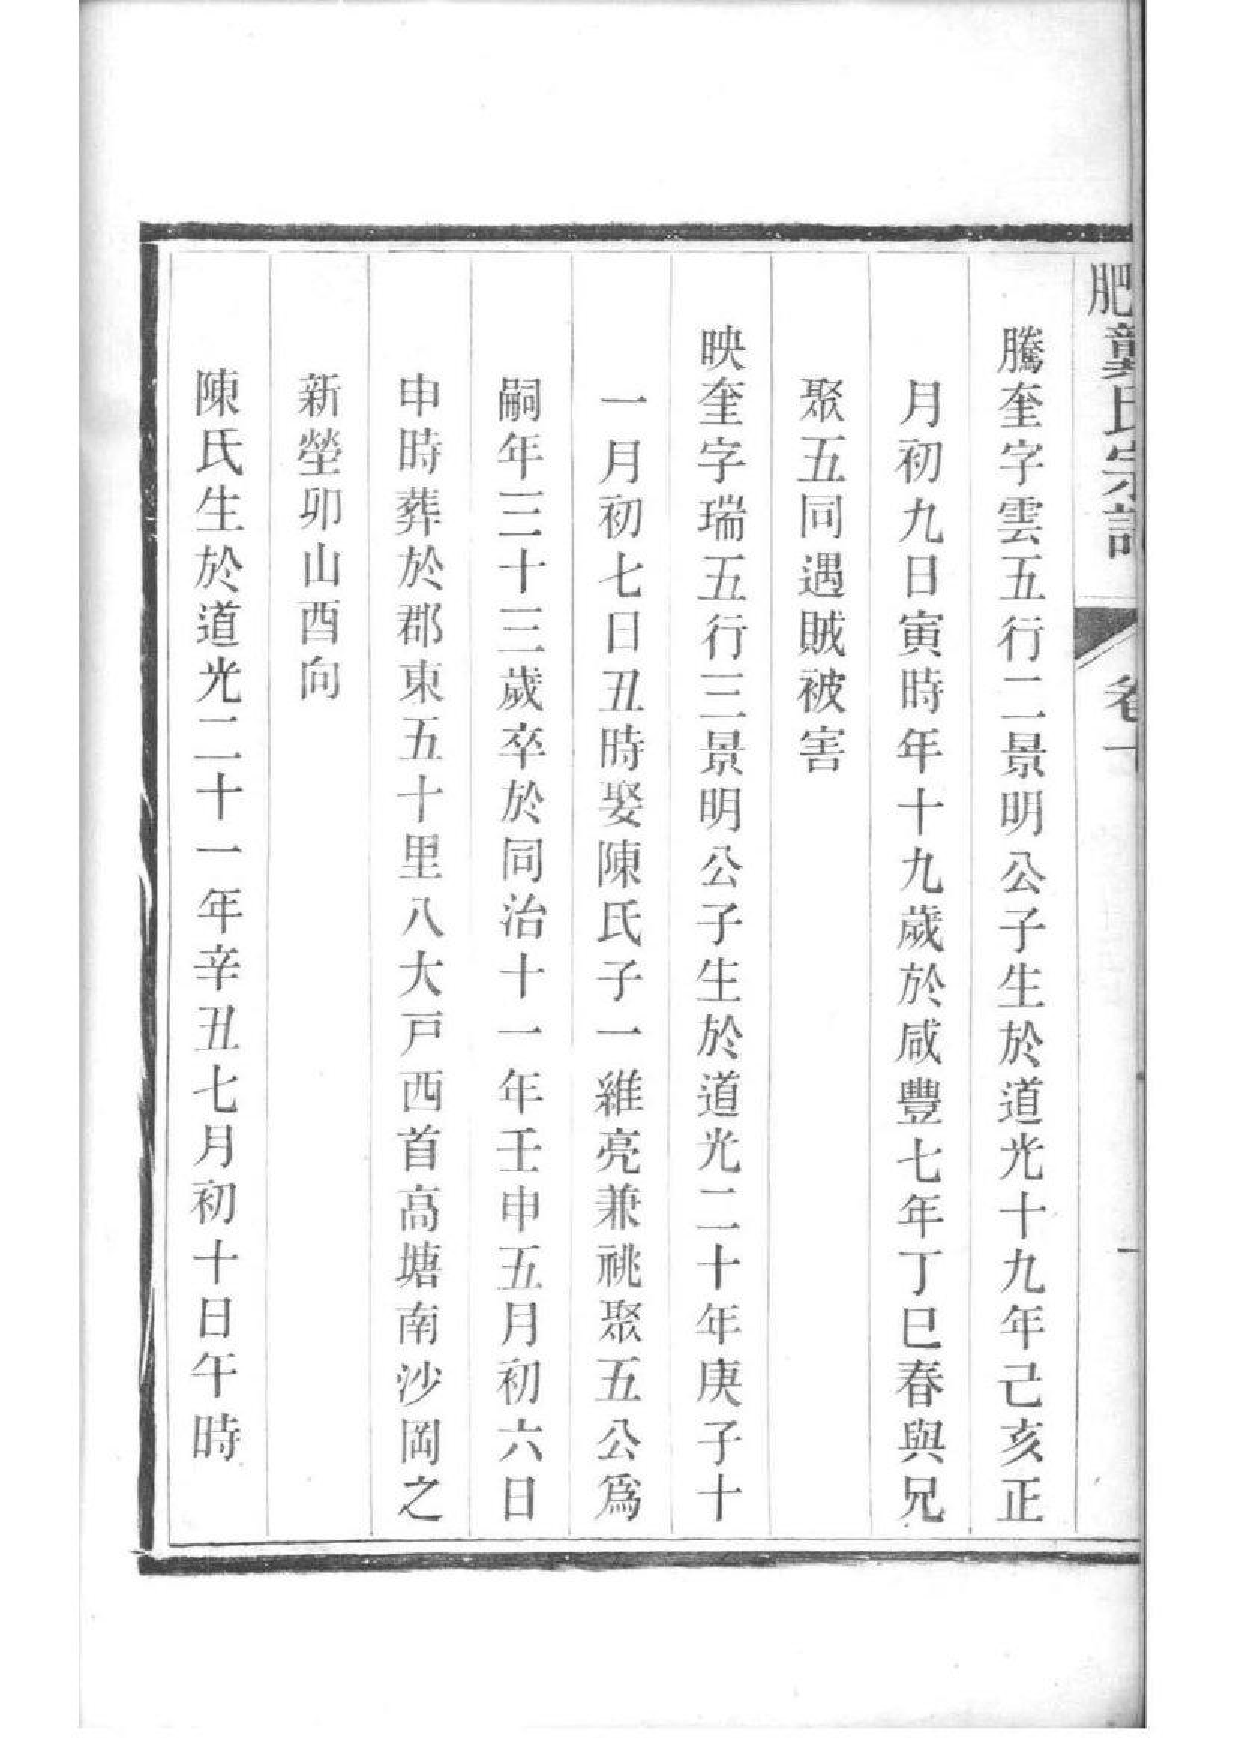 肥龔氏宗譜 卷十 一
騰奎字雲五行二景明公子生於道光十九年己亥正
月初九日寅時年十九歲於咸豐七年丁巳春與兄
聚五同遇賊被害
映奎字瑞五行三景明公子生於道光二十年庚子十
一月初七日丑時娶陳氏子一維亮兼祧聚五公爲
嗣年三十三歲卒於同治十一年壬申五月初六日
申時葬於郡東五十里八大戸西首高塘南沙岡之
新塋卯山酉向
陳氏生於道光二十一年辛丑七月初十日午時